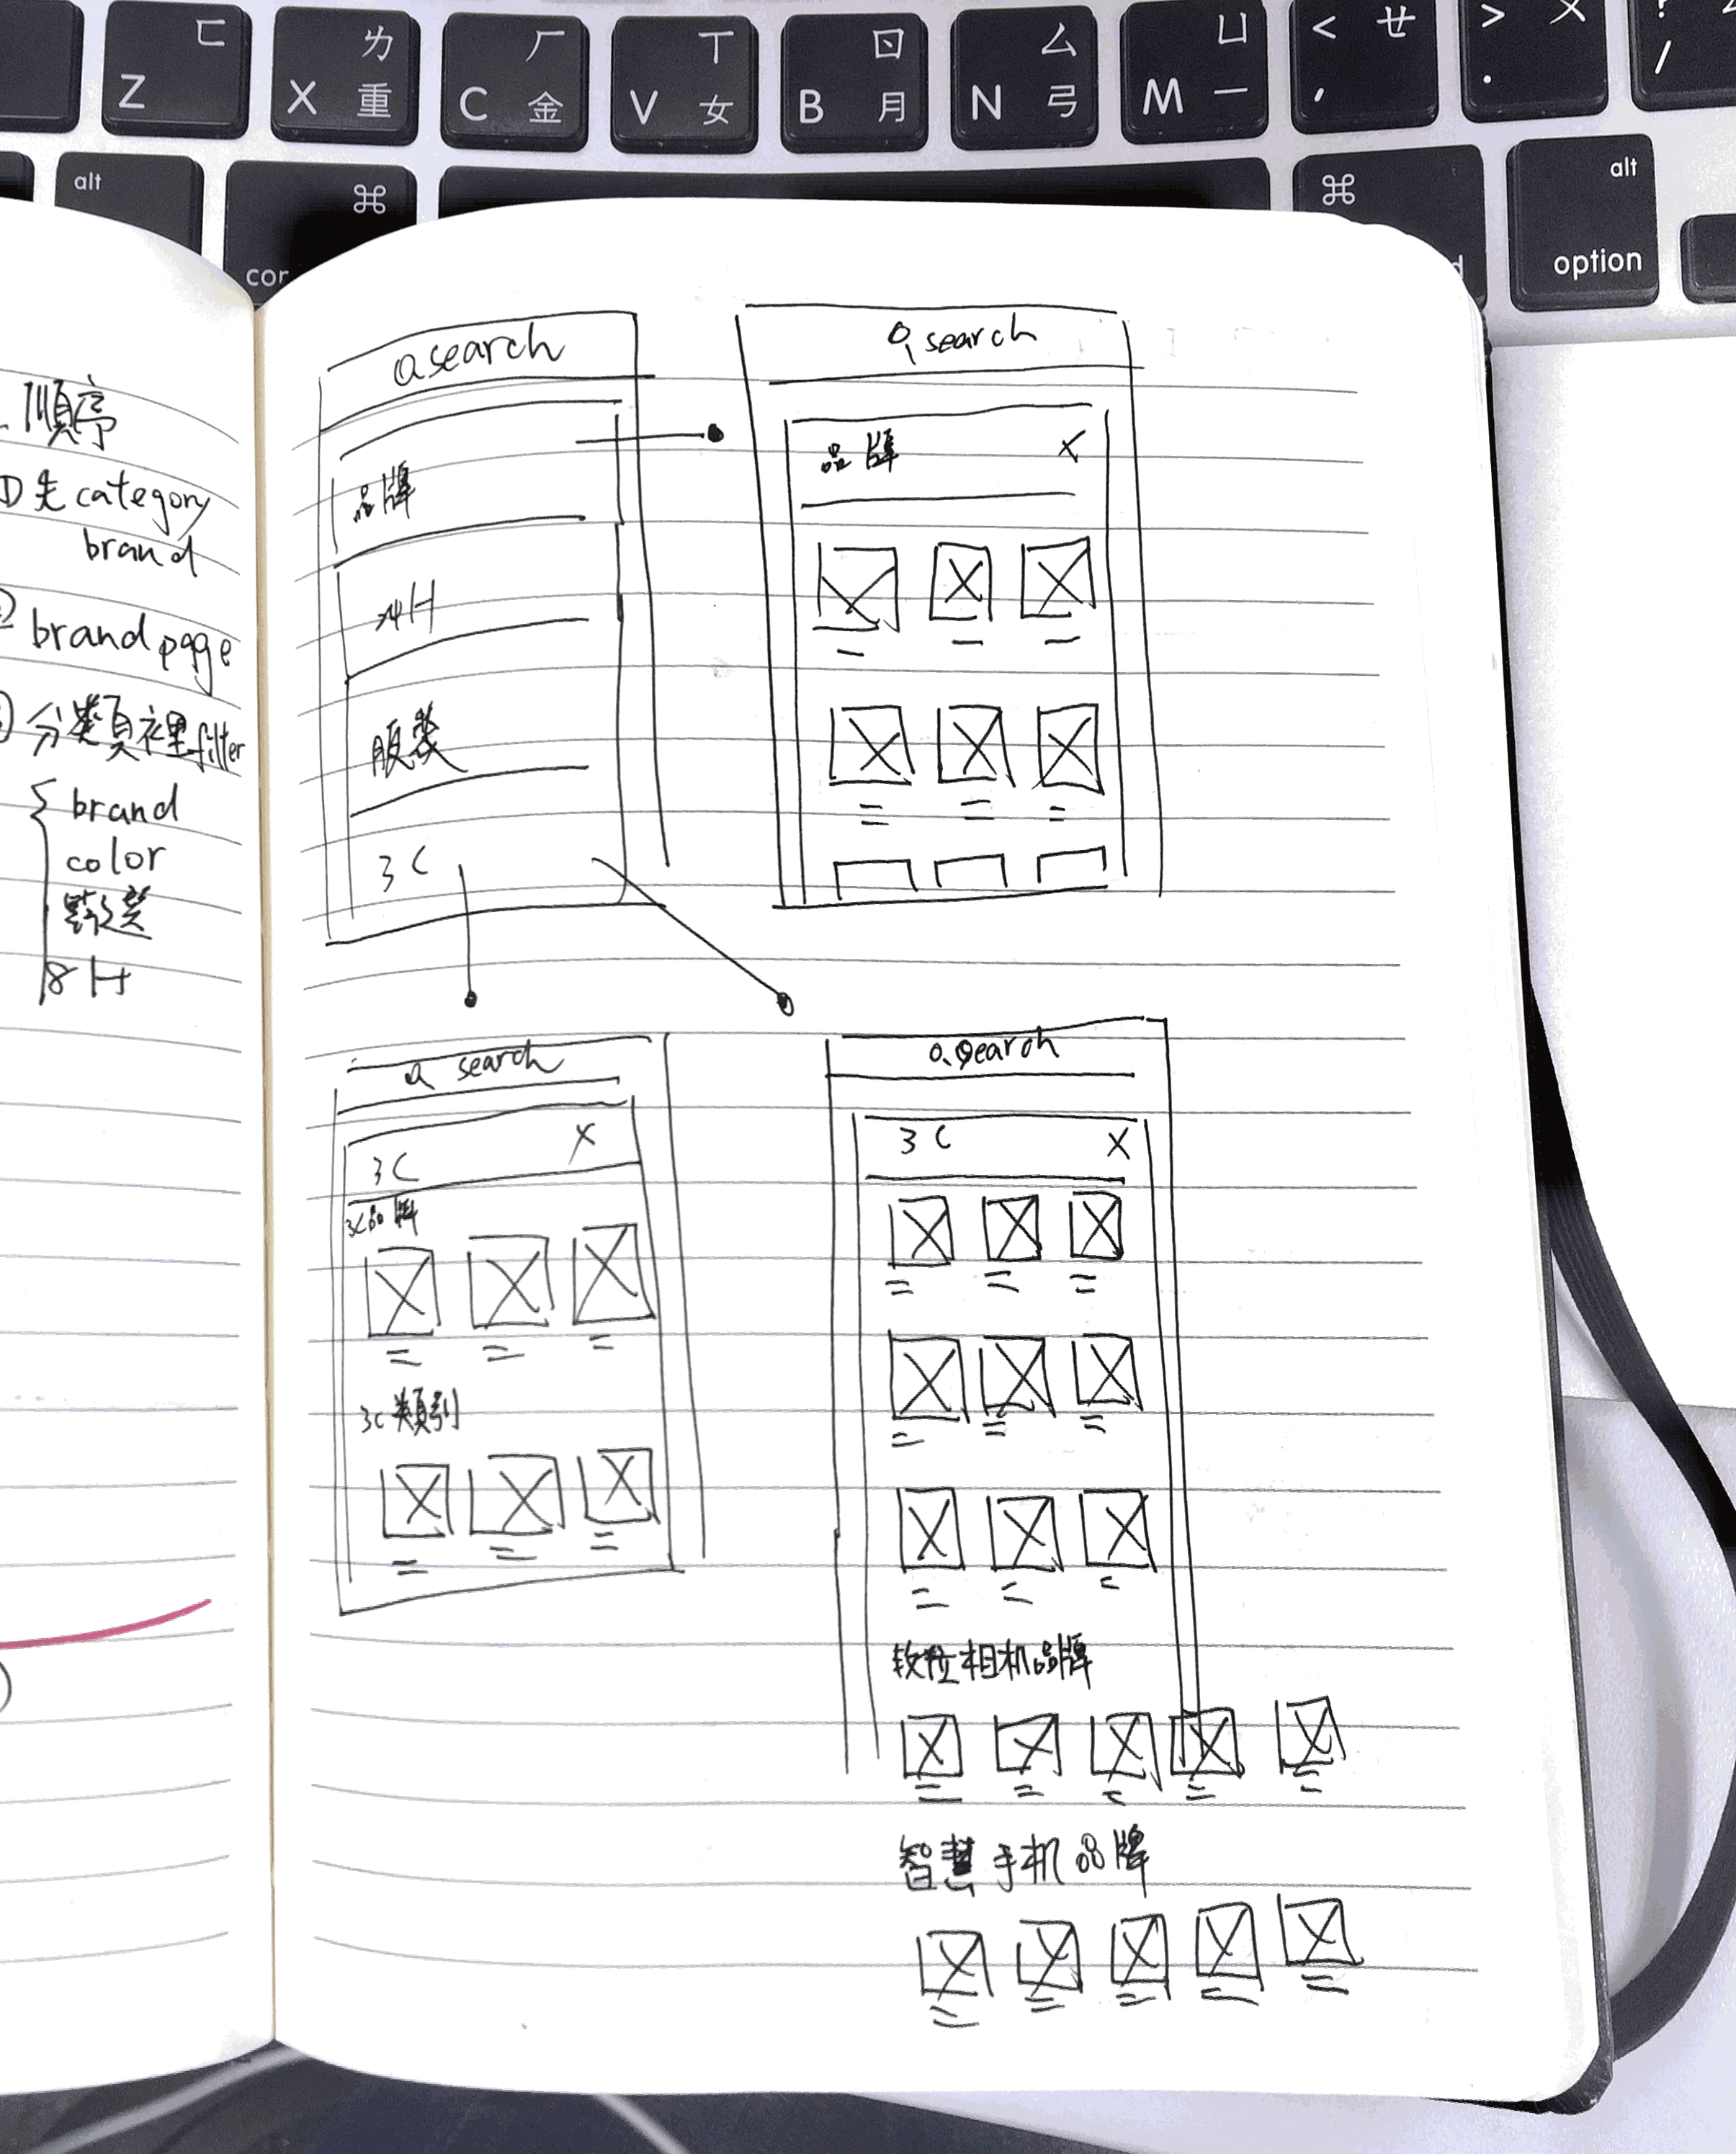 ㄈ
Z
ㄌ
X 重
ㄏ
C 金
ㄒ
V 女
ㄖ
B 月
ㄙ
N 弓
ㄩ
M 一
< ㄝ
,
> ㄡ
.
?
/
alt
⌘
⌘
alt
option
順序
① 先 category
brand
② brand page
分類裡 filter
brand
color
search
品牌
服裝
3C
search
品牌 X
search
3C X
3C品牌
3C類別
search
3C X
数位相机品牌
智慧手机品牌